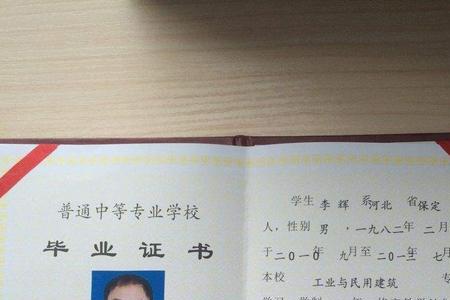 普通中等专业学校
毕业证书
学生 李辉 系河北 省保定
人，性别 男，一九八二年 二月
于二〇一〇年 九月至 二〇一三 七月
本校 工业与民用建筑 专